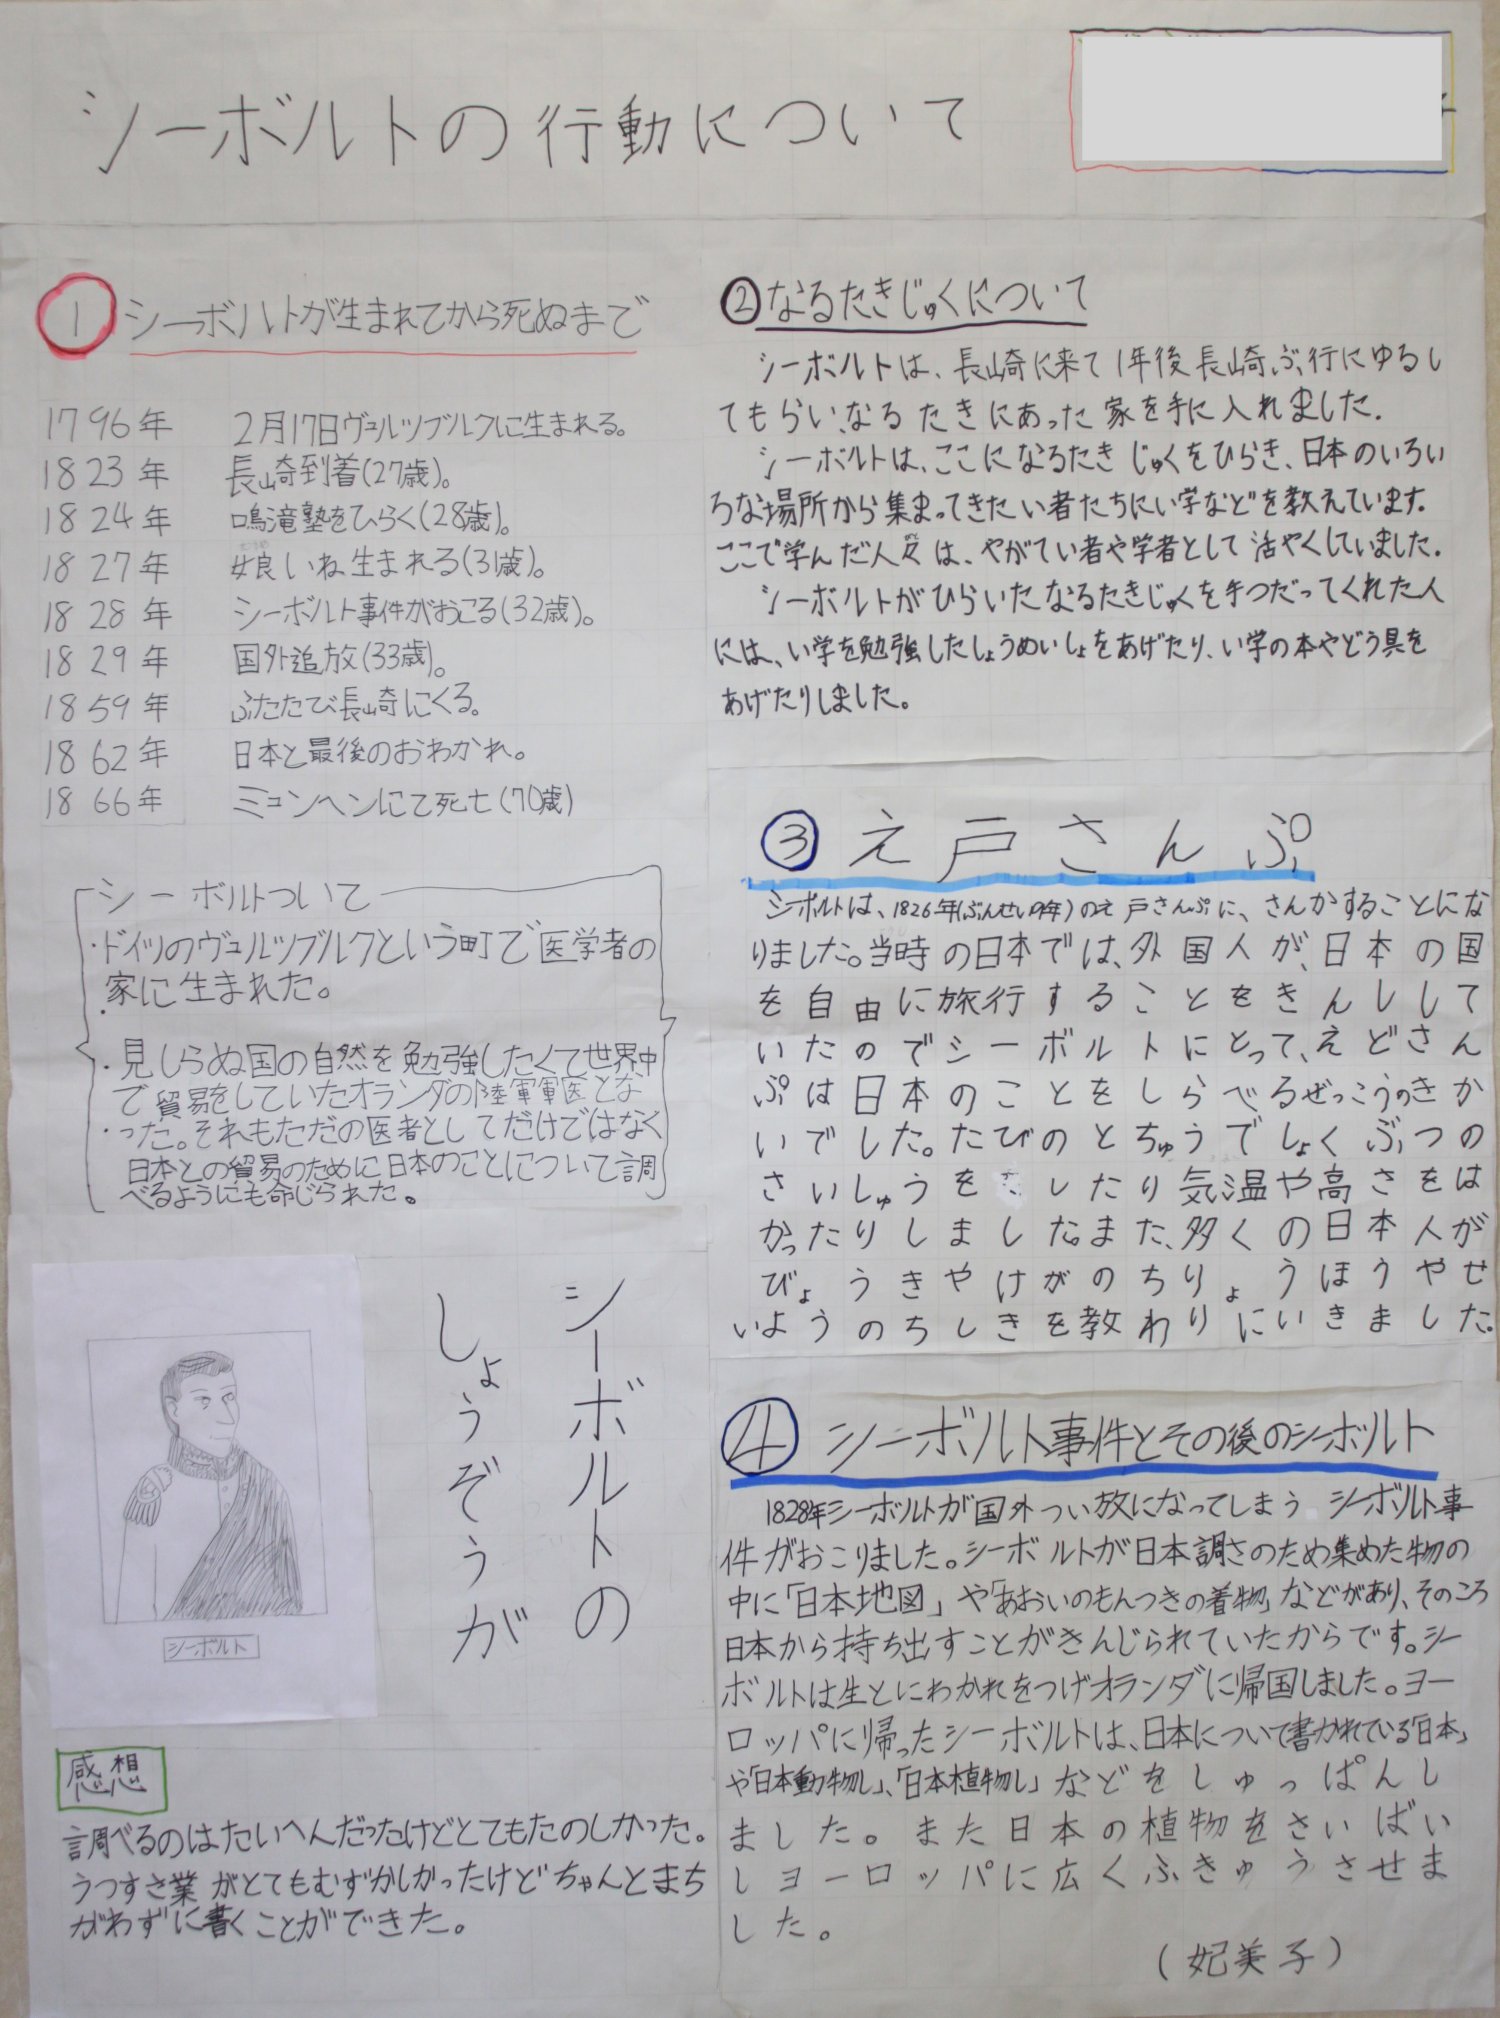 シーボルトの行動について
① シーボルトが生まれてから死ぬまで
1796年 2月17日ヴュルツブルクに生まれる。
1823年 長崎到着(27歳)。
1824年 鳴滝塾をひらく(28歳)。
1827年 娘いね生まれる(31歳)。
1828年 シーボルト事件がおこる(32歳)。
1829年 国外追放(33歳)。
1859年 ふたたび長崎にくる。
1862年 日本と最後のおわかれ。
1866年 ミュンヘンにて死亡(70歳)
シーボルトついて
・ドイツのヴュルツブルクという町で医学者の
家に生まれた。
・見しらぬ国の自然を勉強したくて世界中
で貿易をしていたオランダの陸軍軍医とな
った。それもただの医者としてだけではなく
日本との貿易のために日本のことについて調
べるようにも命じられた。
シーボルトの
しょうぞうが
シーボルト
感想
調べるのはたいへんだったけどとてもたのしかった。
うつすさ業がとてもむずかしかったけどちゃんとまち
がわずに書くことができた。
② なるたきじゅくについて
シーボルトは、長崎に来て1年後長崎ぶ行にゆるし
てもらい、なるたきにあった家を手に入れました.
シーボルトは、ここになるたきじゅくをひらき、日本のいろい
ろな場所から集まってきたい者たちにい学などを教えています.
ここで学んだ人々は、やがてい者や学者として活やくしていました.
シーボルトがひらいたなるたきじゅくを手つだってくれた人
には、い学を勉強したしょうめいしょをあげたり、い学の本やどう具を
あげたりしました。
③ え戸さんぷ
シーボルトは、1826年(ぶんせい9年)のえ戸さんぷに、さんかすることにな
りました。当時の日本では、外国人が、日本の国
を自由に旅行することをきんしして
いたのでシーボルトにとって、えどさん
ぷは日本のことをしらべるぜっこうのきか
いでした。たびのとちゅうでしょくぶつの
さいしゅうをしたり気温や高さをは
かったりしました。また、多くの日本人が
びょうきやけがのちりょうほうやせ
いようのちしきを教わりにいきました。
④ シーボルト事件とその後のシーボルト
1828年シーボルトが国外つい放になってしまうシーボルト事
件がおこりました。シーボルトが日本調さのため集めた物の
中に「日本地図」や「あおいのもんつきの着物」などがあり、そのころ
日本から持ち出すことがきんじられていたからです。シー
ボルトは生とにわかれをつげオランダに帰国しました。ヨー
ロッパに帰ったシーボルトは、日本について書かれている「日本」
や「日本動物し」、「日本植物し」などをしゅっぱんし
ました。また日本の植物をさいばい
しヨーロッパに広くふきゅうさせま
した。
(妃美子)